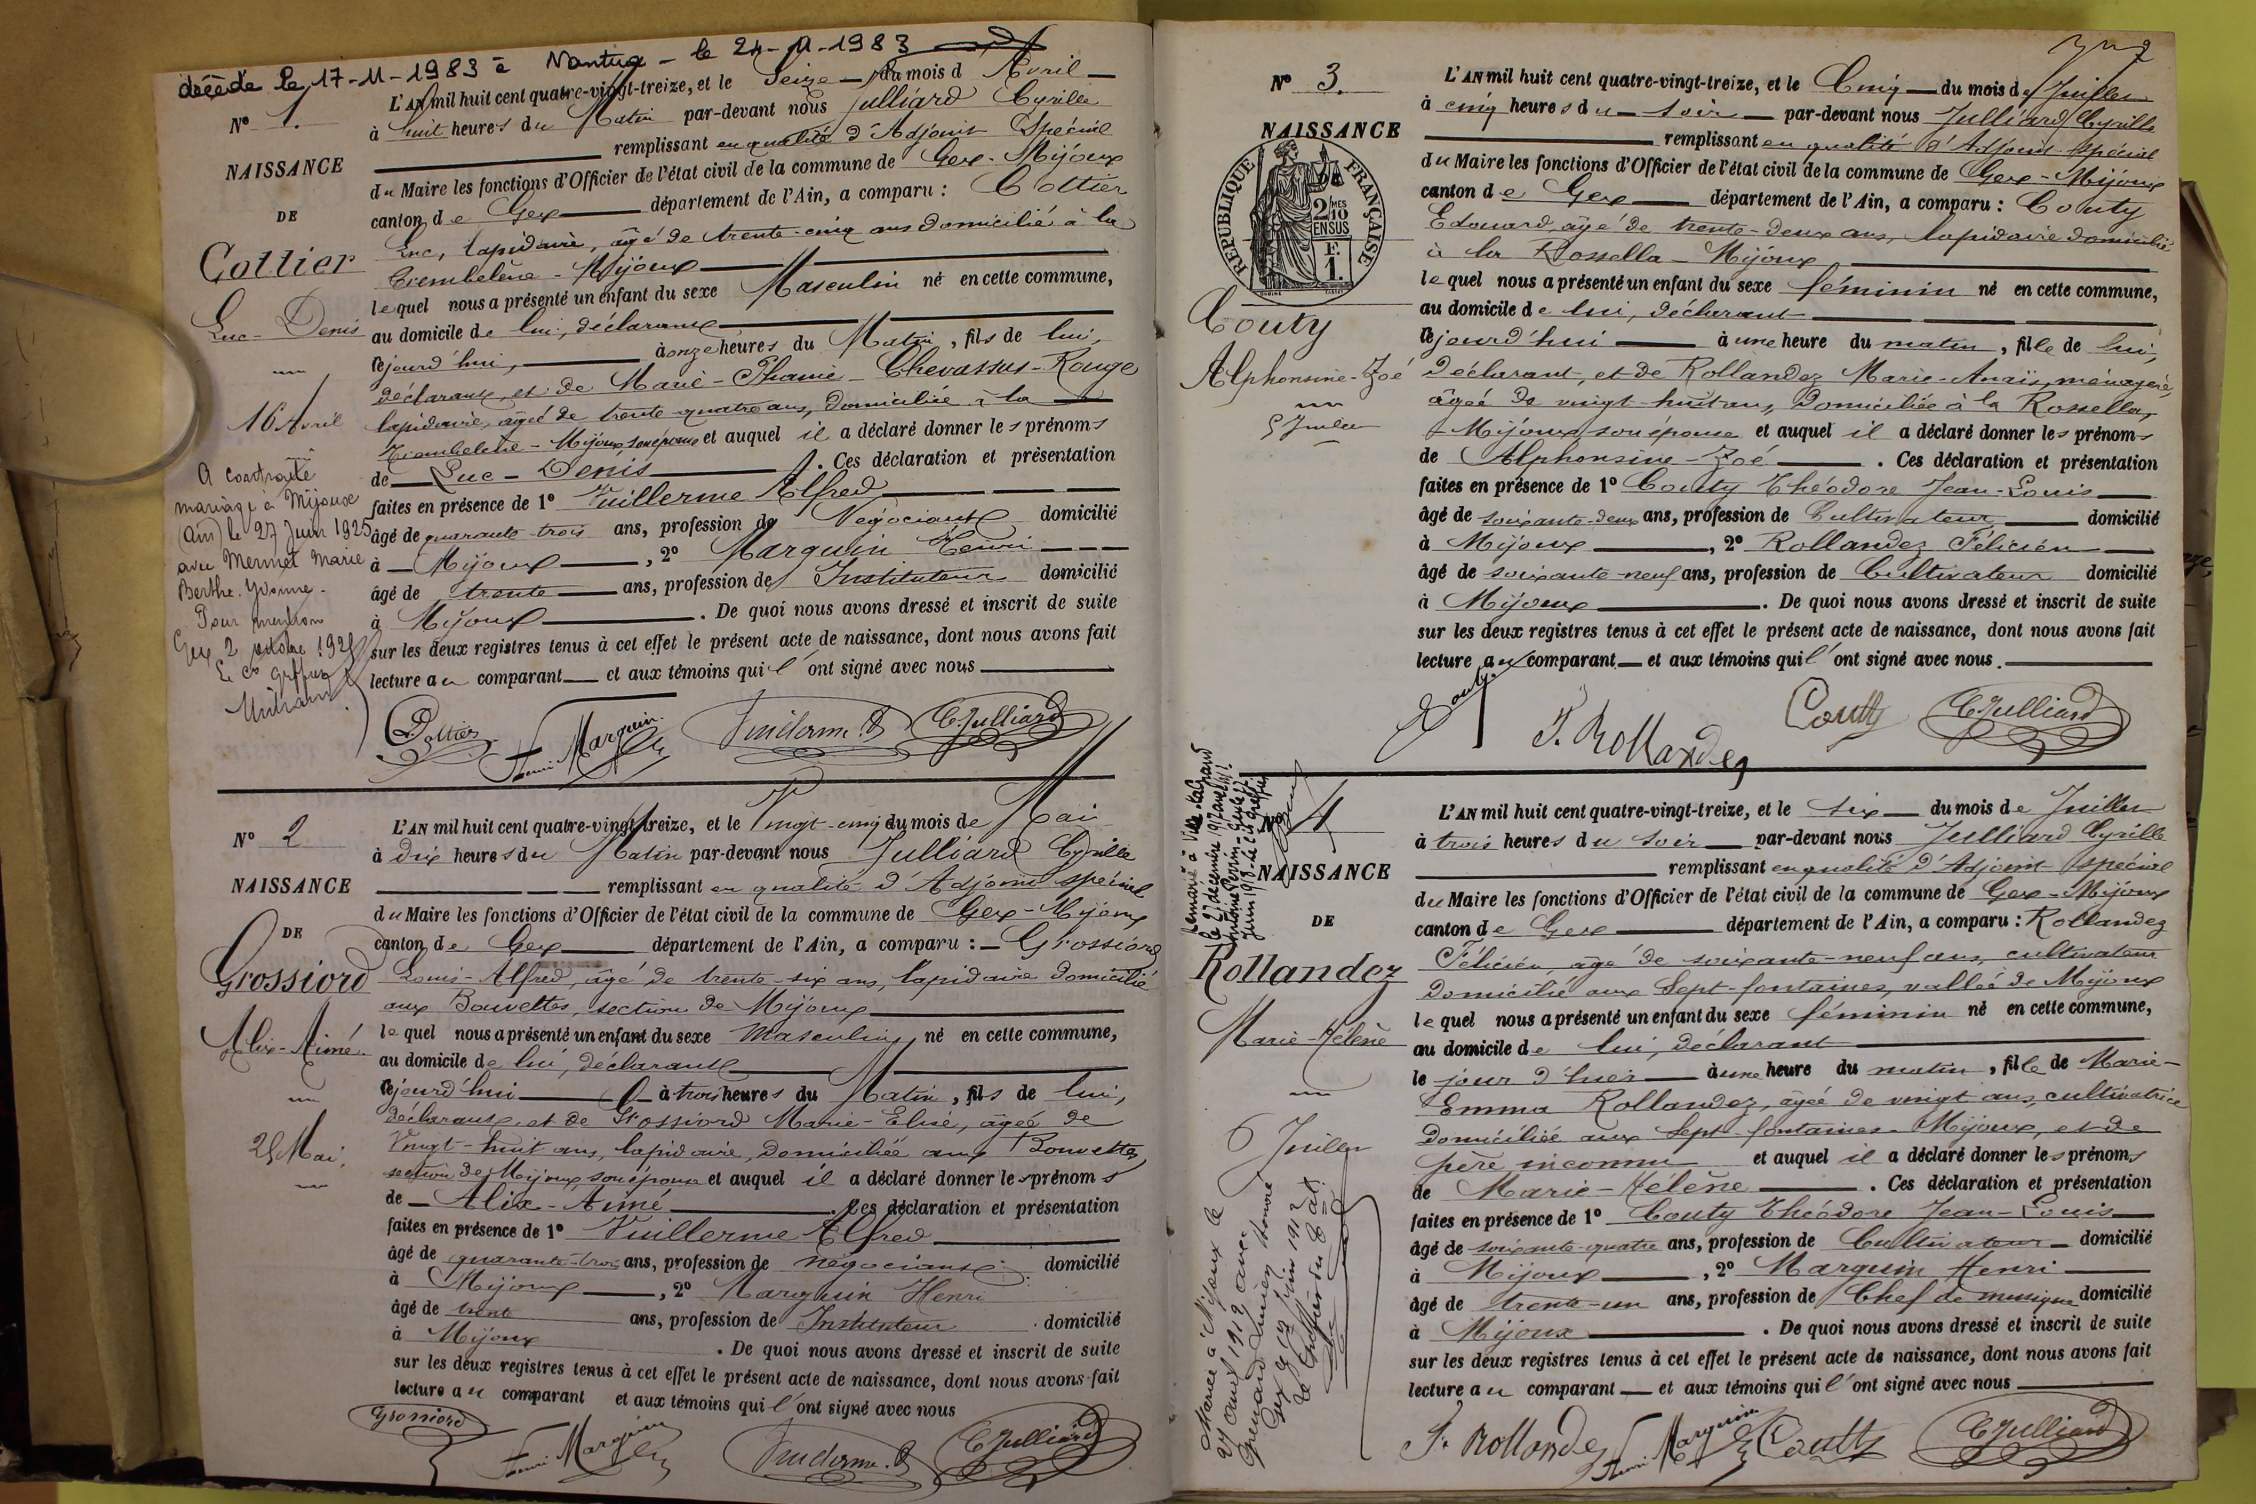 décédé le 17-11-1983 à Nantua - le 24-11-1983
N° 1.
NAISSANCE
DE
Cottier
Luc-Denis
16 Avril
A contracté
mariage à Mijoux
(Ain) le 27 Juin 1925
avec Mermet Marie
Berthe Yvonne.
Pour mention
Gex, 2 octobre 192
L'AN mil huit cent quatre-vingt-treize, et le Seize du mois d'Avril
à huit heures du Matin par-devant nous Julliard Cyrille
remplissant en qualité d'Adjoint Spécial
du Maire les fonctions d'Officier de l'état civil de la commune de Gex-Mijoux
canton de Gex département de l'Ain, a comparu : Cottier
Luc, lapidaire, âgé de trente-cinq ans domicilié à la
Trembelène - Mijoux
lequel nous a présenté un enfant du sexe Masculin né en cette commune,
au domicile de lui, déclarant
cejourd'hui, à onze heures du Matin, fils de lui,
déclarant, et de Marie-Phanie Chevassus-Rouge
lapidaire, âgée de trente-quatre ans, domiciliée à la
Trembelène - Mijoux, son épouse et auquel il a déclaré donner les prénoms
de Luc-Denis. Ces déclaration et présentation
faites en présence de 1° Vuillerme Alfred
âgé de quarante-trois ans, profession de Négociant domicilié
à Mijoux, 2° Marquin Henri
âgé de trente ans, profession de Instituteur domicilié
à Mijoux. De quoi nous avons dressé et inscrit de suite
sur les deux registres tenus à cet effet le présent acte de naissance, dont nous avons fait
lecture au comparant et aux témoins qui l'ont signé avec nous
Cottier Henri Marquin Vuillerme A C. Julliard
N° 2
NAISSANCE
DE
Grossiord
Alix-Aimé
25 Mai.
L'AN mil huit cent quatre-vingt-treize, et le Vingt-cinq du mois de Mai
à dix heures du Matin par-devant nous Julliard Cyrille
remplissant en qualité d'Adjoint spécial
du Maire les fonctions d'Officier de l'état civil de la commune de Gex-Mijoux
canton de Gex département de l'Ain, a comparu : Grossiord
Louis-Alfred, âgé de trente-six ans, lapidaire domicilié
aux Bouvettes, section de Mijoux
lequel nous a présenté un enfant du sexe masculin né en cette commune,
au domicile de lui, déclarant
cejourd'hui à trois heures du Matin, fils de lui,
déclarant, et de Grossiord Marie-Elise, âgée de
Vingt-huit ans, lapidaire, domiciliée aux Bouvettes,
section de Mijoux, son épouse et auquel il a déclaré donner les prénoms
de Alix-Aimé. Ces déclaration et présentation
faites en présence de 1° Vuillerme Alfred
âgé de quarante-trois ans, profession de négociant domicilié
à Mijoux, 2° Marquin Henri
âgé de trente ans, profession de Instituteur domicilié
à Mijoux. De quoi nous avons dressé et inscrit de suite
sur les deux registres tenus à cet effet le présent acte de naissance, dont nous avons fait
lecture au comparant et aux témoins qui l'ont signé avec nous
Grossiord Henri Marquin Vuillerme A C. Julliard
N° 3.
NAISSANCE
DE
RÉPUBLIQUE FRANÇAISE
2/10MES
EN SUS
1F.
Couty
Alphonsine-Zoé
5 Juillet
L'AN mil huit cent quatre-vingt-treize, et le Cinq du mois de Juillet
à cinq heures du soir par-devant nous Julliard Cyrille
remplissant en qualité d'Adjoint spécial
du Maire les fonctions d'Officier de l'état civil de la commune de Gex-Mijoux
canton de Gex département de l'Ain, a comparu : Couty
Edouard, âgé de trente-deux ans, lapidaire domicilié
à la Rossella - Mijoux
lequel nous a présenté un enfant du sexe féminin né en cette commune,
au domicile de lui, déclarant
cejourd'hui à une heure du matin, fille de lui,
déclarant, et de Rollandez Marie-Anaïs, ménagère,
âgée de vingt-huit ans, domiciliée à la Rossella,
Mijoux, son épouse et auquel il a déclaré donner les prénoms
de Alphonsine-Zoé. Ces déclaration et présentation
faites en présence de 1° Couty Théodore Jean-Louis
âgé de soixante-deux ans, profession de Cultivateur domicilié
à Mijoux, 2° Rollandez Félicien
âgé de soixante-neuf ans, profession de Cultivateur domicilié
à Mijoux. De quoi nous avons dressé et inscrit de suite
sur les deux registres tenus à cet effet le présent acte de naissance, dont nous avons fait
lecture au comparant et aux témoins qui l'ont signé avec nous.
Couty F. Rollandez Couty C. Julliard
4
NAISSANCE
DE
Rollandez
Marie-Hélène
6 Juillet
Remariée à
le 27 décembre 1917 avec
Mariée à Mijoux le
27 avril 1912 avec
Grenard Lucien Honoré
Gex le 19 juin 1912
L'AN mil huit cent quatre-vingt-treize, et le six du mois de Juillet
à trois heures du soir par-devant nous Julliard Cyrille
remplissant en qualité d'Adjoint spécial
du Maire les fonctions d'Officier de l'état civil de la commune de Gex-Mijoux
canton de Gex département de l'Ain, a comparu : Rollandez
Félicien, âgé de soixante-neuf ans, cultivateur
domicilié aux Sept-fontaines, vallée de Mijoux
lequel nous a présenté un enfant du sexe féminin né en cette commune,
au domicile de lui, déclarant
le jour d'hier à une heure du matin, fille de Marie-
Emma Rollandez, âgée de vingt ans, cultivatrice
domiciliée aux Sept-fontaines - Mijoux, et de
père inconnu et auquel il a déclaré donner les prénoms
de Marie-Hélène. Ces déclaration et présentation
faites en présence de 1° Couty Théodore Jean-Louis
âgé de soixante-quatre ans, profession de Cultivateur domicilié
à Mijoux, 2° Marquin Henri
âgé de trente-un ans, profession de Chef de musique domicilié
à Mijoux. De quoi nous avons dressé et inscrit de suite
sur les deux registres tenus à cet effet le présent acte de naissance, dont nous avons fait
lecture au comparant et aux témoins qui l'ont signé avec nous
F. Rollandez Henri Marquin Couty C. Julliard